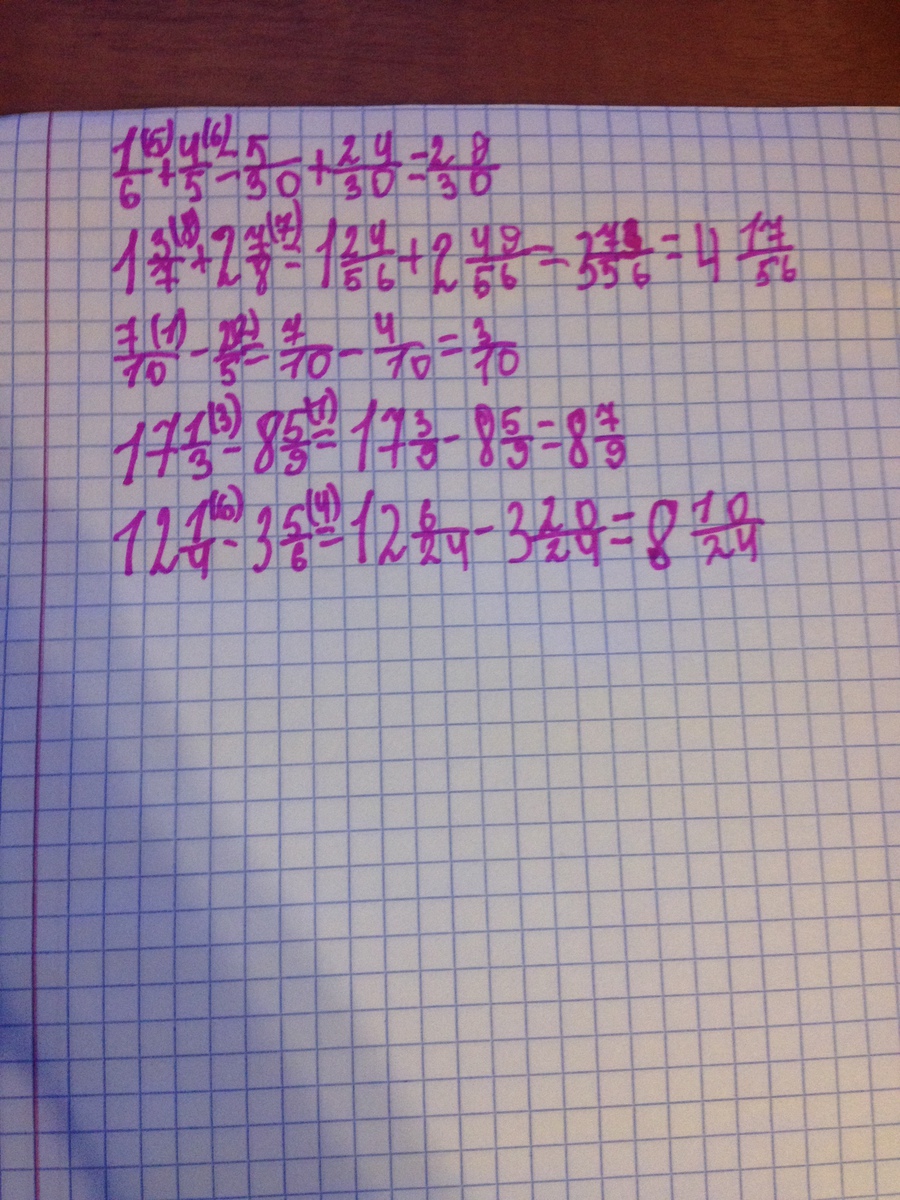 1/6 (5) + 4/5 (6) = 5/30 + 24/30 = 29/30
1 3/7 (8) + 2 7/8 (7) = 1 24/56 + 2 49/56 = 3 73/56 = 4 17/56
7/10 (1) - 2/5 (2) = 7/10 - 4/10 = 3/10
17 1/3 (3) - 8 5/9 (1) = 17 3/9 - 8 5/9 = 8 7/9
12 1/4 (6) - 3 5/6 (4) = 12 6/24 - 3 20/24 = 8 10/24